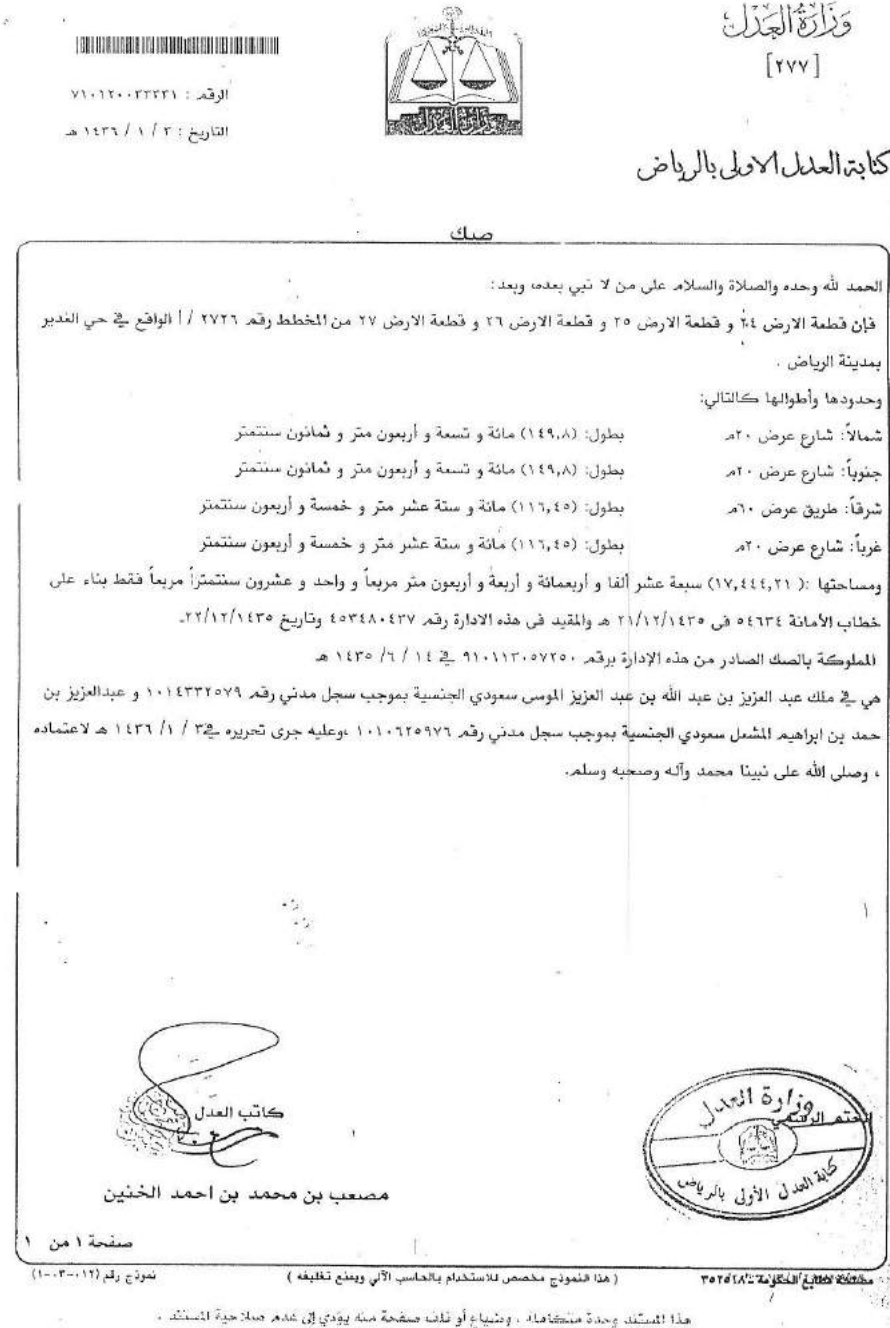 وزارة العدل
[٢٧٧]
كتابة العدل الاولى بالرياض
الرقم : ٧١٠١٢٠٠٣٣٣٣١
التاريخ : ٣ / ١ / ١٤٣٦ هـ
وزارة العدل
صك
الحمد لله وحده والصلاة والسلام على من لا نبي بعده، وبعد:
فإن قطعة الارض ٢٤ و قطعة الارض ٢٥ و قطعة الارض ٢٦ و قطعة الارض ٢٧ من المخطط رقم ٢٧٢٦ / أ الواقع في حي الغدير
بمدينة الرياض .
وحدودها وأطوالها كالتالي:
شمالاً: شارع عرض ٢٠م بطول: (١٤٩,٨) مائة و تسعة و أربعون متر و ثمانون سنتمتر
جنوباً: شارع عرض ٢٠م بطول: (١٤٩,٨) مائة و تسعة و أربعون متر و ثمانون سنتمتر
شرقاً: طريق عرض ٦٠م بطول: (١١٦,٤٥) مائة و ستة عشر متر و خمسة و أربعون سنتمتر
غرباً: شارع عرض ٢٠م بطول: (١١٦,٤٥) مائة و ستة عشر متر و خمسة و أربعون سنتمتر
ومساحتها :( ١٧,٤٤٤,٢١) سبعة عشر ألفا و أربعمائة و أربعة و أربعون متر مربعاً و واحد و عشرون سنتمتراً مربعاً فقط بناء على
خطاب الأمانة ٥٤٦٣٤ فى ٢١/١٢/١٤٣٥ هـ والمقيد فى هذه الادارة رقم ٤٥٣٤٨٠٤٣٧ وتاريخ ٢٢/١٢/١٤٣٥.
المملوكة بالصك الصادر من هذه الإدارة برقم ٩١٠١١٣٠٥٧٢٥٠ في ١٤ / ٦/ ١٤٣٥ هـ
هي في ملك عبد العزيز بن عبد الله بن عبد العزيز الموسى سعودي الجنسية بموجب سجل مدني رقم ١٠١٤٣٣٢٥٧٩ و عبدالعزيز بن
حمد بن ابراهيم المشعل سعودي الجنسية بموجب سجل مدني رقم ١٠١٠٦٢٥٩٧٦ ،وعليه جرى تحريره في٣ / ١/ ١٤٣٦ هـ لاعتماده
، وصلى الله على نبينا محمد وآله وصحبه وسلم.
كاتب العدل
مصعب بن محمد بن احمد الخنين
الختم الرسمي
وزارة العدل
كتابة العدل الأولى بالرياض
صفحة ١ من ١
مطابع الحكومة - ٣٥٢٥٤٨
( هذا النموذج مخصص للاستخدام بالحاسب الآلي ويمنع تغليفه )
نموذج رقم (١٢-٠٣-٠١)
هذا المستند وحدة متكاملة ، وضياع أو تلف صفحة منه يؤدي إلى عدم صلاحية المستند .